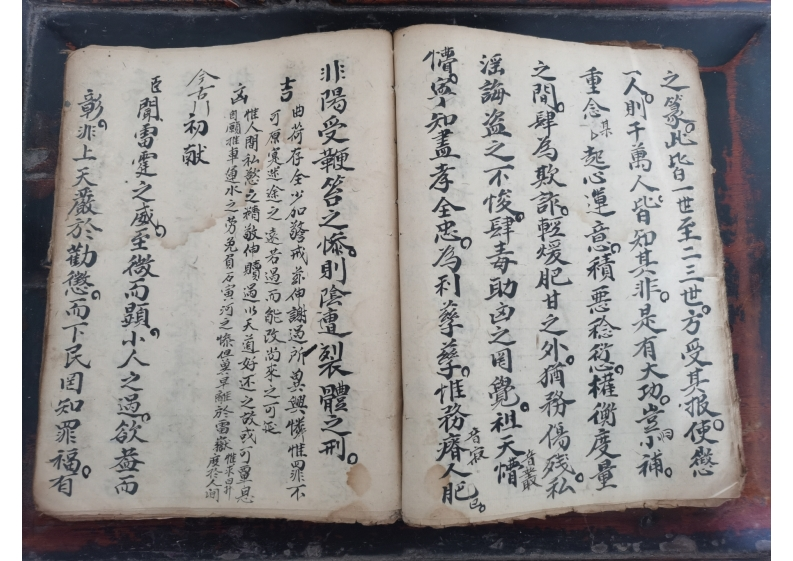 之篆。此皆一世至二三世。方受其报。使懲
一人。則千萬人。皆知其非。是有大功。豈小補
重念某起心運意。積悪稔愆。權衡度量
之間。肆為欺詐。輕煖肥甘之外。猶務傷殘。私
音叢
滛誨盗之不悛。肆毒助凶之罔覺。祖天懵
懵。寧知盡孝全忠。為利孳孳。惟務瘠人肥己。
音寂
非陽受鞭笞之慘。則陰遭裂體之刑。
吉 曲荷存全少加警戒茲伸謝過所兾興憐惟罪不
可原寔迷途之遠若過而能改尚來之可
凶 惟人間私慾之積敬伸贖過以天道好还之故或可單恩
自願推車運水之劳免負石寅河之慘但早離於雷嶽
今古 初献
臣聞雷霆之威。至微而顯。小人之過。欲盖而
彰。非上天嚴於勸懲。而下民罔知罪福。有